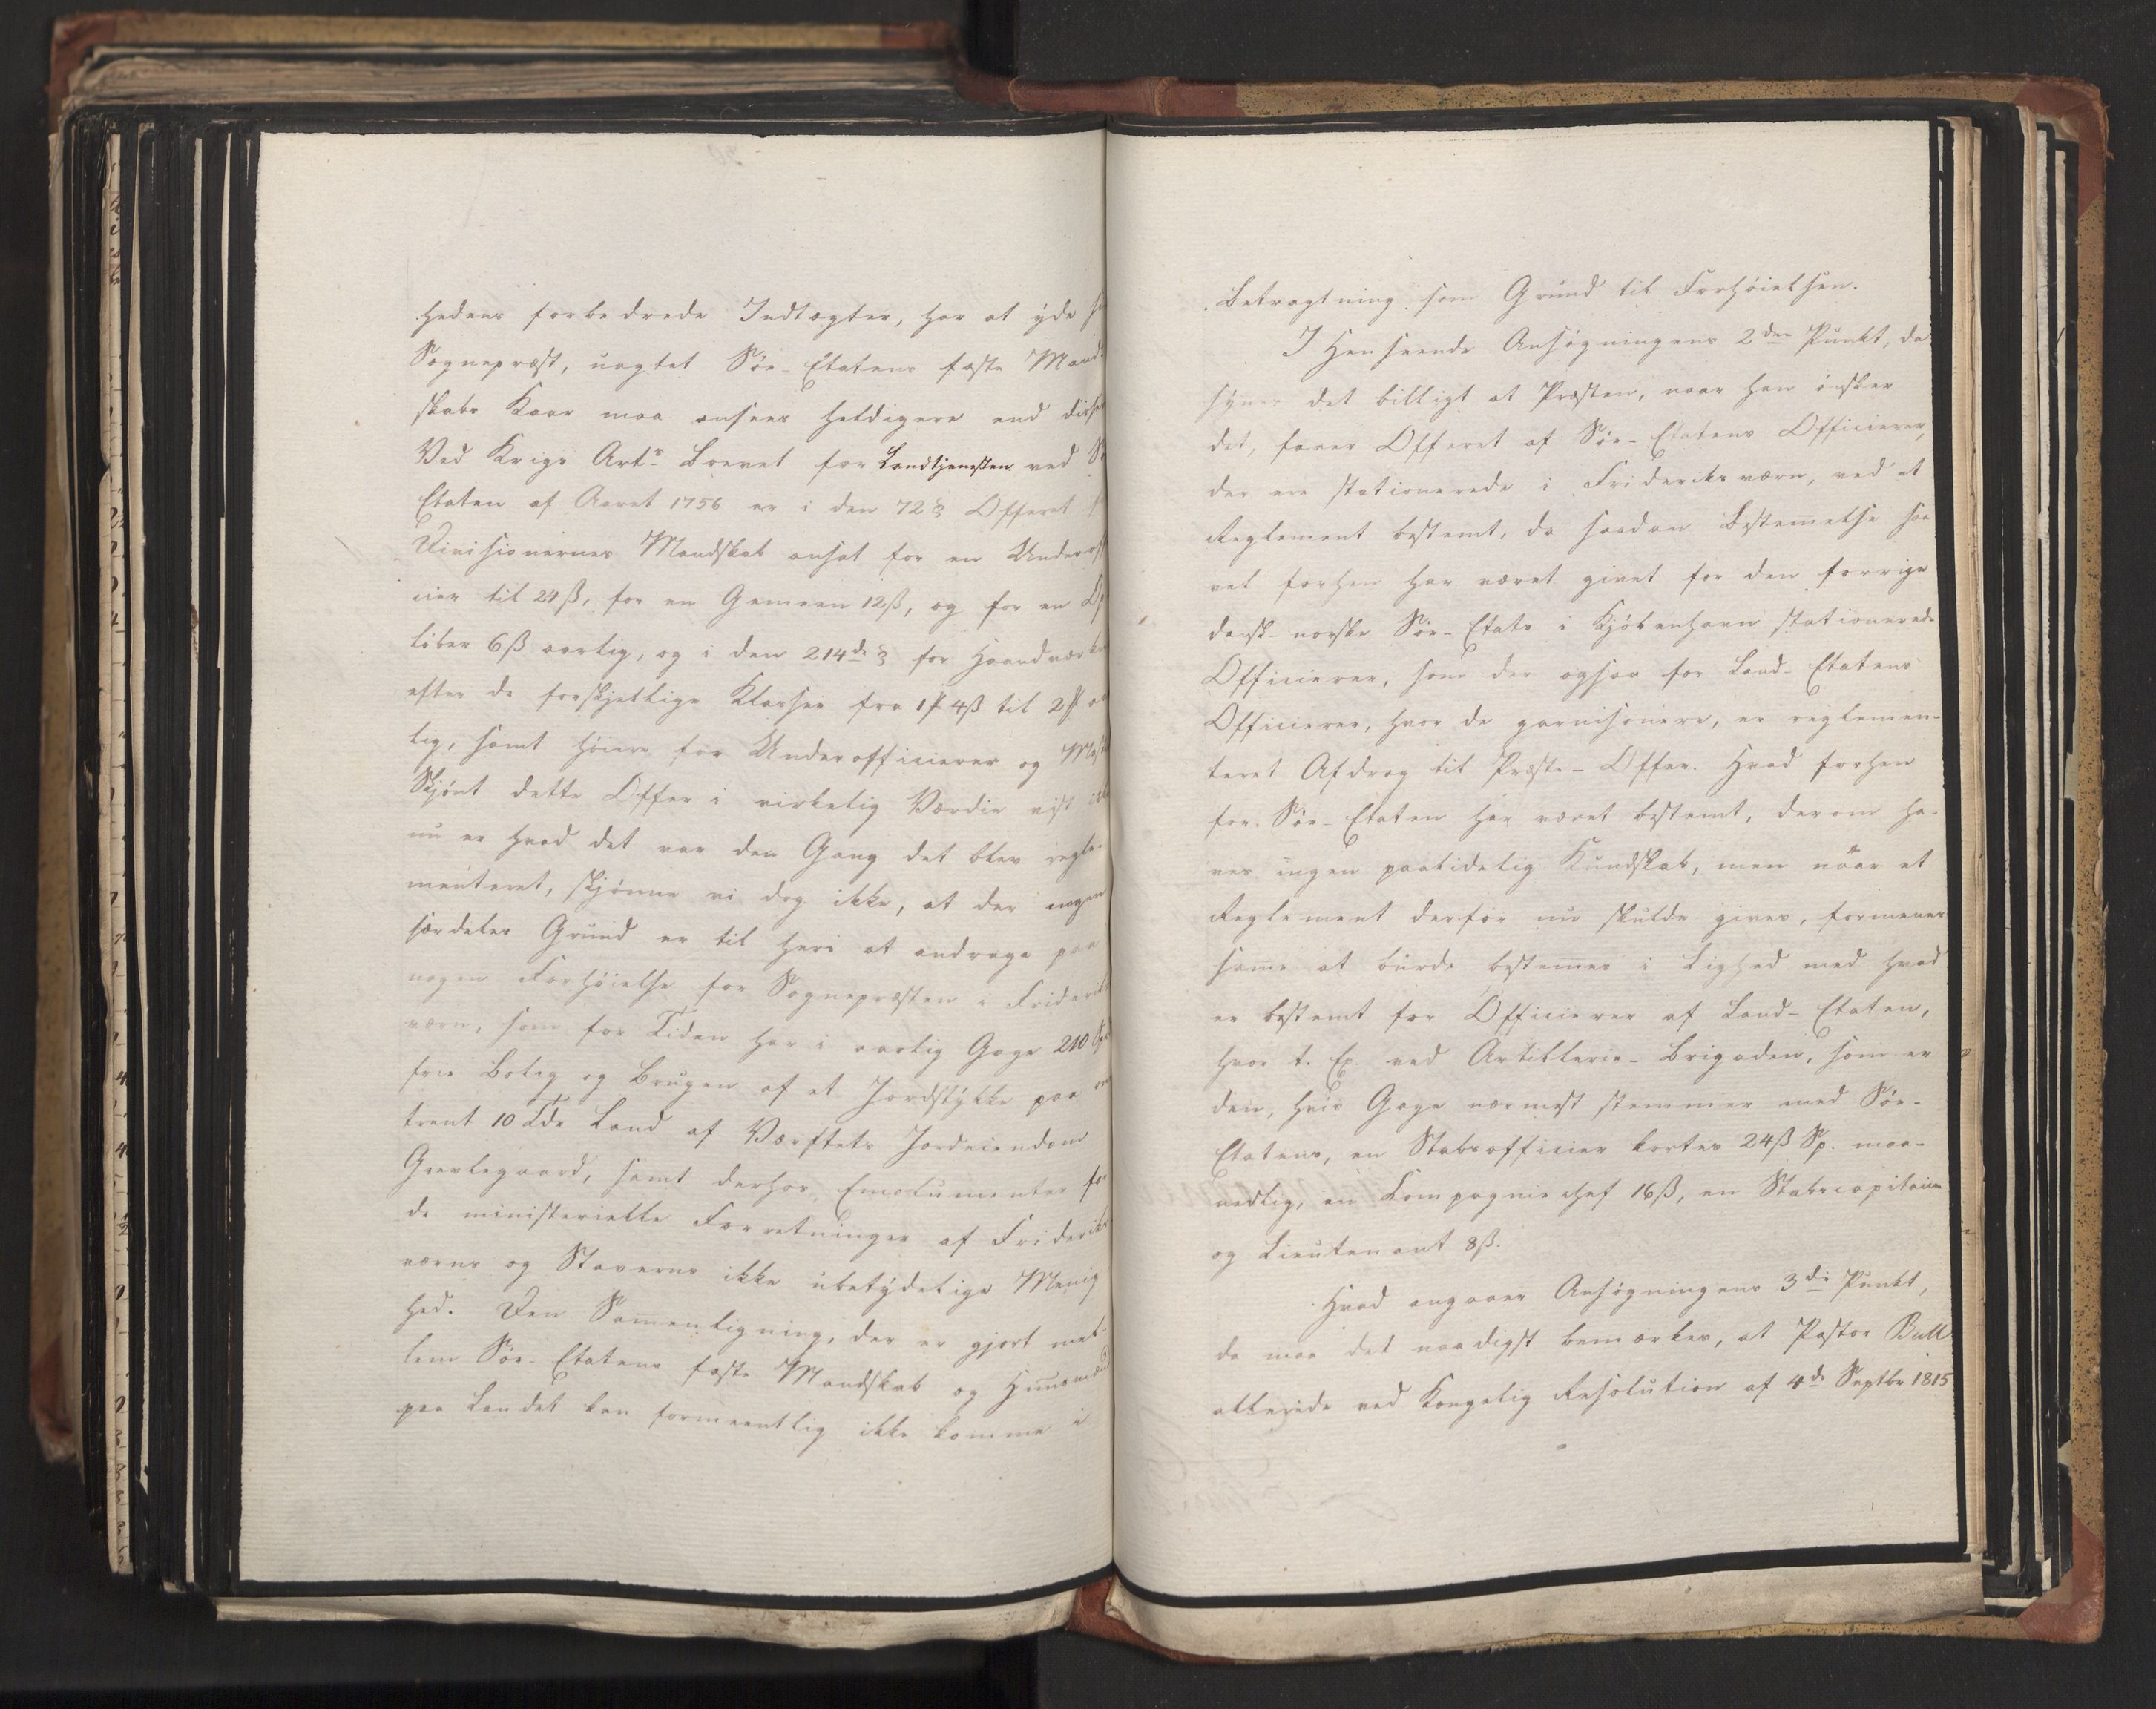 hedens forbedrede Indtægter, har at yde
Sognepræst, uagtet Søe-Etatens faste Mand-
skabs Kaar maa ansees heldigere end
Ved Krigs Arts Brevet for Landtjenesten ved
Etaten af Aaret 1756 er i den 72 § Offeret
Divisionernes Mandskab ansat for en Underoff
cier til 24 ß, for en Gemeen 12 ß, og for en
løber 6 ß aarlig, og i den 214de § for Haandværke
efter de forskjellige Klasser fra 1 4 ß til 2
lig, samt høiere for Underofficierer og
Skjønt dette Offer i virkelig Værdie vist
nu er hvad det var den Gang det blev regle-
menteret, skjønne vi dog ikke, at der ingen
særdeles Grund er til heri at andrage paa
nogen Forhøielse for Sognepræsten i Frideriks
værn, som for Tiden har i aarlig Gage 210 Sp
frie Bolig og Brugen af et Jordstykke paa om
trent 10 Tdr Land af Værftets Jordeiendom
Grevlegaard, samt derhos Emolumenter for
de ministerielle Forretninger af Frideriks
værns og Staverns ikke ubetydelige Menig
hed. Den Samenligning, der er gjort mel-
lem Søe-Etatens faste Mandskab og Huusmænd
paa Landet kan formeentlig ikke komme i
Betragtning som Grund til Forhøielsen.
I Henseende Ansøgningens 2den Punkt, da
synes det billigt at Præsten, naar han ønsker
det, faaer Offeret af Søe-Etatens Officierer,
der ere stationerede i Frideriksværn, ved et
Reglement bestemt, da saadan Bestemelse saa
vel forhen har været givet for den forrige
dansk-norske Søe-Etats i Kjøbenhavn stationerede
Officierer, som der ogsaa for Land-Etatens
Officierer, hvor de garnisonere, er reglemen-
teret Afdrag til Præste-Offer. Hvad forhen
for Søe-Etaten har været bestemt, derom ha-
ves ingen paalidelig Kundskab, men naar et
Reglement derfor nu skulde gives, formenes
same at burde bestemes i Lighed med hvad
er bestemt for Officierer af Land-Etaten,
hvor t. Ex. ved Artillerie-Brigaden, som er
den, hvis Gage nærmest stemmer med Søe-
Etatens, en Stabsofficier kortes 24 ß Sp. maa-
nedlig, en Kompagniechef 16 ß, en Stabscapitain
og Lieutenant 8 ß.
Hvad angaaer Ansøgningens 3die Punkt,
da maa det naadigst bemærkes, at Pastor Bull
allerede ved Kongelig Resolution af 4de Septbr 1815